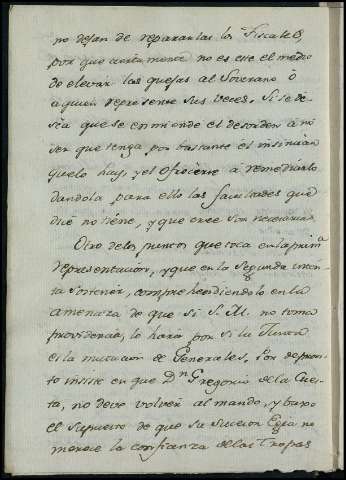 no dejan de repararlas los Fiscales,
por que ciertamente no es ese el medio
de elevar las quejas al Soverano ó
a quien represente sus veces. Si se de-
sea que se enmiende el desorden á no
ser que tenga por bastante el insinuar
quelo hay, y el ofrecerse á remediarlo
dandola para ello las facultades que
dice no tiene, y que cree son necesarias.
Otro delos puntos que toca en la prim.ª
representacion, y que en la segunda inten-
ta sostener, comprehendiendolo en la
amenaza de que si S. M. no toma
providencia, lo hará por si la Junta
es la mutacion de Generales. Por de pron-
to insiste en que D.n Gregorio de la Cues-
ta, no deve volver al mando, y baxo
el supuesto de que su succesor Eguia no
merece la confianza de las Tropas